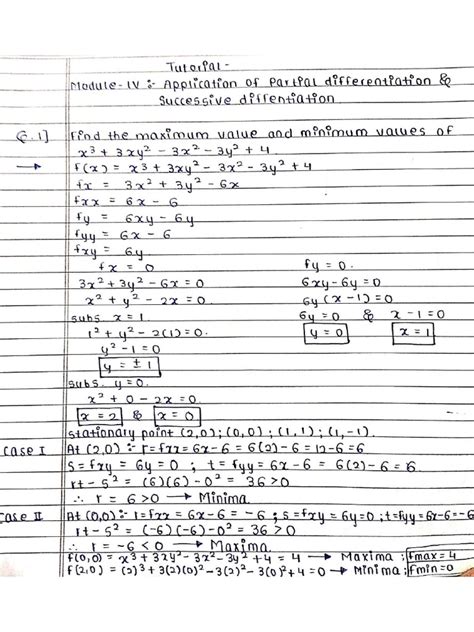 Tutorial -
Module-IV :- Application of Partial differentiation &
Successive diffentiation
Q.1] Find the maximum value and minimum values of
x³ + 3xy² - 3x² - 3y² + 4
→ f(x) = x³ + 3xy² - 3x² - 3y² + 4
fx = 3x² + 3y² - 6x
fxx = 6x - 6
fy = 6xy - 6y
fyy = 6x - 6
fxy = 6y
fx = 0 fy = 0.
3x² + 3y² - 6x = 0 6xy - 6y = 0
x² + y² - 2x = 0 6y (x - 1) = 0
subs x = 1. 6y = 0 & x - 1 = 0
1² + y² - 2(1) = 0. y = 0 x = 1
y² - 1 = 0
y = ± 1
subs. y = 0.
x² + 0 - 2x = 0.
x = 2 & x = 0
stationary point (2,0) ; (0,0) ; (1,1) ; (1,-1)
Case I At (2,0) :- r = fxx = 6x - 6 = 6(2) - 6 = 12 - 6 = 6
s = fxy = 6y = 0 ; t = fyy = 6x - 6 = 6(2) - 6 = 6
rt - s² = (6)(6) - 0² = 36 > 0
∴ r = 6 > 0 → Minima.
Case II At (0,0) :- r = fxx = 6x - 6 = -6 ; s = fxy = 6y = 0 ; t = fyy = 6x - 6 = -6
rt - s² = (-6)(-6) - 0² = 36 > 0
∴ r = -6 < 0 → Maxima
f(0,0) = x³ + 3xy² - 3x² - 3y² + 4 = 4 → Maxima ; fmax = 4
f(2,0) = (2)³ + 3(2)(0)² - 3(2)² - 3(0)² + 4 = 0 → Minima ; fmin = 0